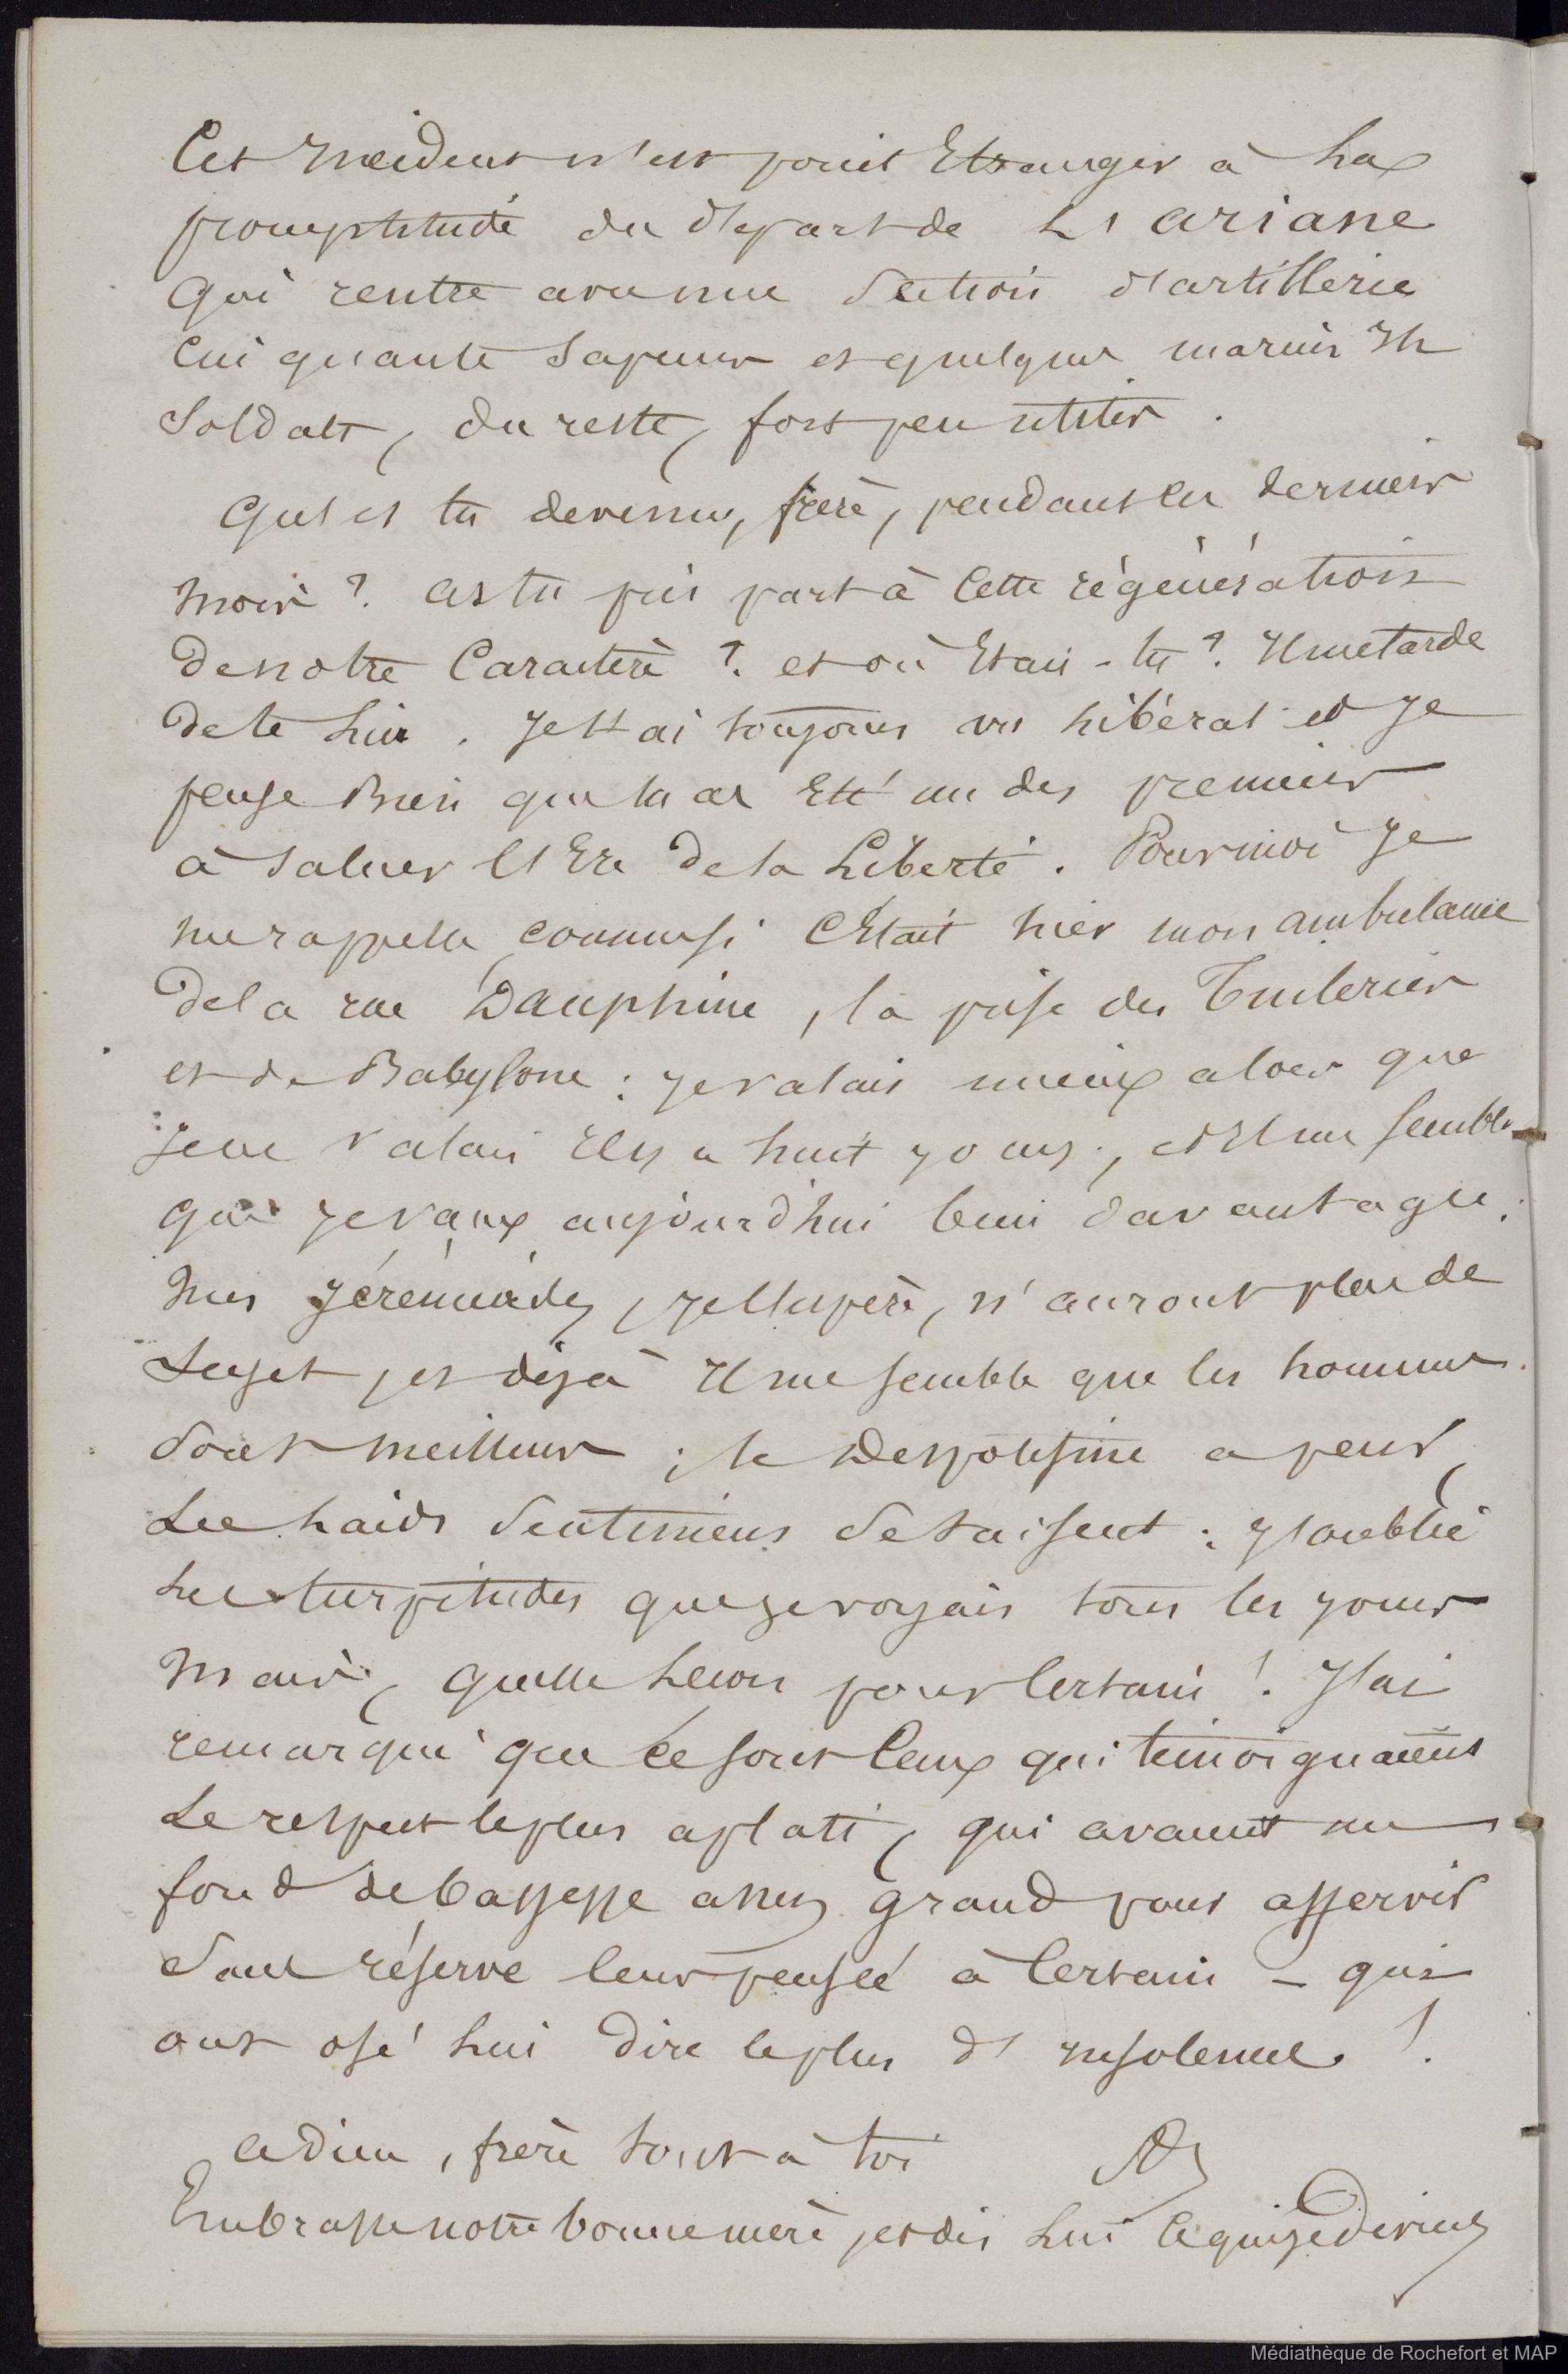 Cet Incident n'est point Etranger à La
promptitude du départ de L'ariane
Qui rentre avec une Section d'artillerie
Cinquante Sapeurs et quelques marins Th
Soldats, du reste, fort peu utiles.
Qu'es tu devenu, frère, pendant les derniers
Mois ? as tu pris part à Cette régénération
De notre Caractère ? et où Etais-tu ? Il me tarde
De te Lire. Je t'ai toujours vu Libéral et Je
pense Bien que tu as Eté un des premiers
à Saluer l'Ere De la Liberté. Pour moi Je
me rappelle comme si C'Etait hier mon ambulance
De la rue Dauphine, la prise des Tuileries
et de Babylone : Je valais mieux alors que
Je ne valais Il y a huit Jours, et Il me Semble
que Je vaux aujourd'hui bien davantage.
Mes Jérémiades, Je l'espère, n'auront plus de
Sujet, et déjà Il me Semble que les hommes
Sont Meilleurs ; le Despotisme a peur,
Les Laids Sentimens Se taisent : J'oublie
Les turpitudes que Je voyais tous les Jours
Mais, quelle Lecon pour Certain ! J'ai
remarqué que Ce Sont Ceux qui témoignaient
Le respect le plus aplati, qui avaient un
fond de bassesse assez grand pour asservir
Sans réserve leur pensée à Certain - qui
ont osé Lui Dire le plus d'Insolences !
adieu, frère tout à toi
Embrasse notre bonne mère, et dis Lui Ce que Je Deviens